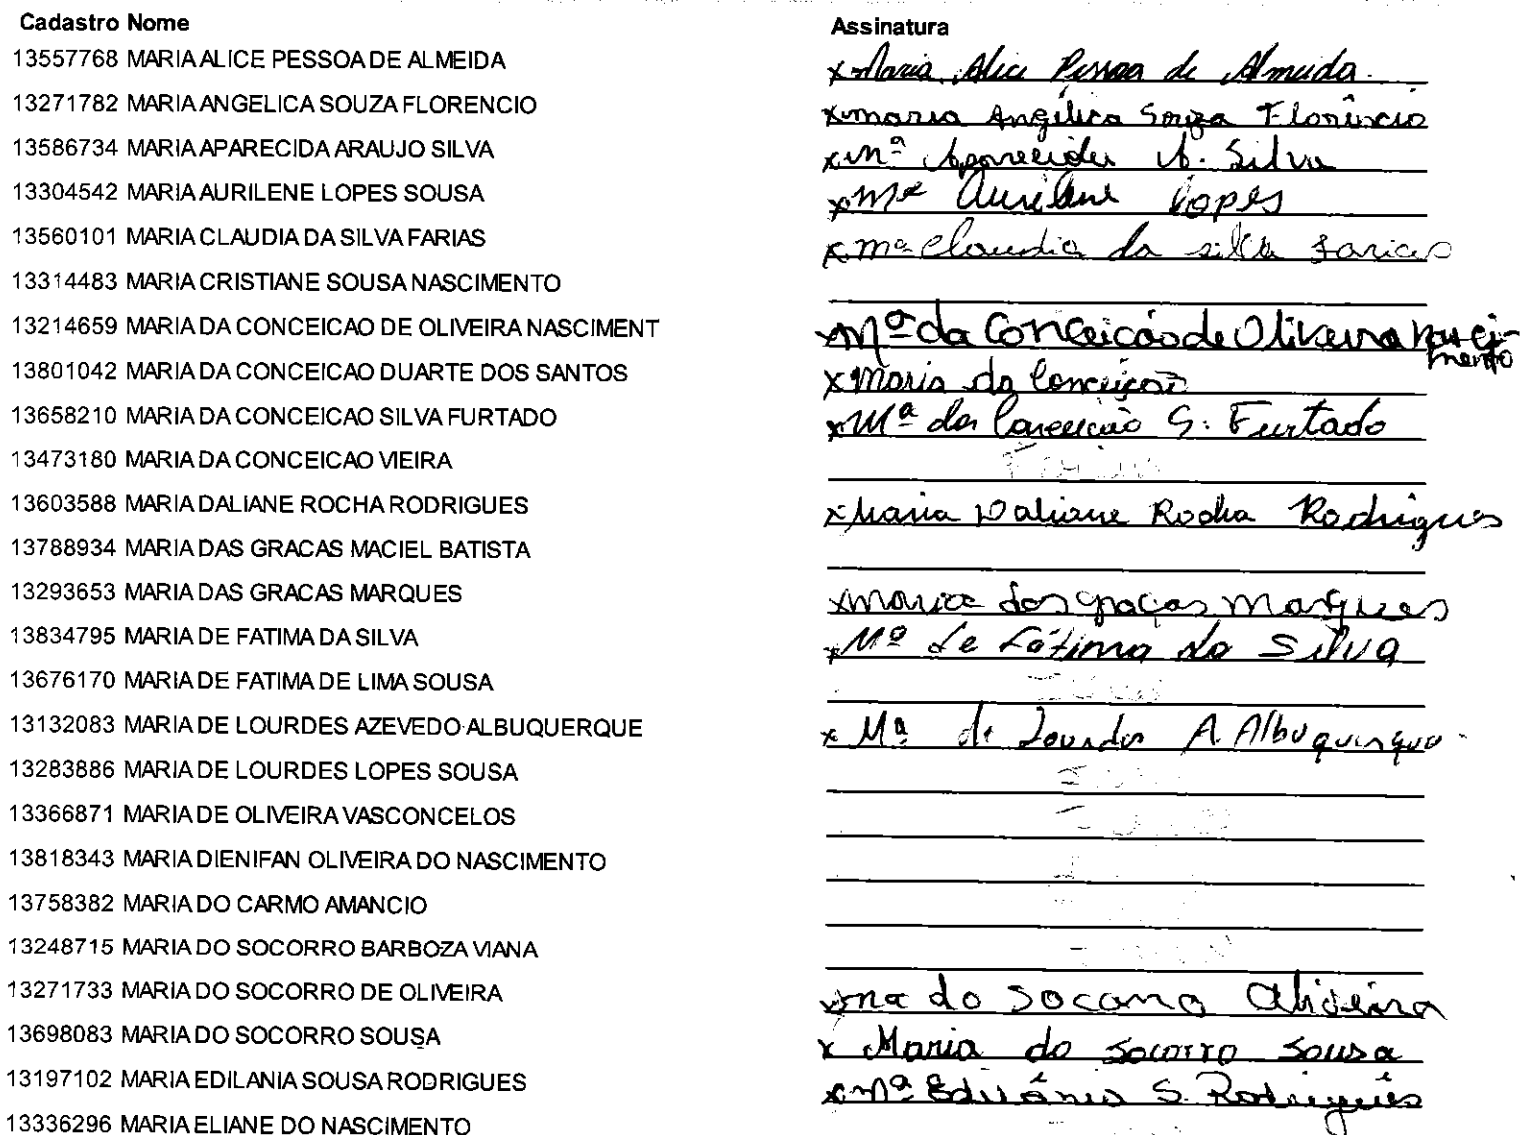 Cadastro Nome Assinatura
13557768 MARIA ALICE PESSOA DE ALMEIDA x Maria Alice Pessoa de Almeida
13271782 MARIA ANGELICA SOUZA FLORENCIO x maria Angélica Souza Florêncio
13586734 MARIA APARECIDA ARAUJO SILVA x Mª Aparecida A. Silva
13304542 MARIA AURILENE LOPES SOUSA x Mª Aurilene Lopes
13560101 MARIA CLAUDIA DA SILVA FARIAS x mª Claudia da silva farias
13314483 MARIA CRISTIANE SOUSA NASCIMENTO
13214659 MARIA DA CONCEICAO DE OLIVEIRA NASCIMENT x Mª da Conceicão de Oliveira Nascimento
13801042 MARIA DA CONCEICAO DUARTE DOS SANTOS x Maria da Conceição
13658210 MARIA DA CONCEICAO SILVA FURTADO x Mª da Conceicão S. Furtado
13473180 MARIA DA CONCEICAO VIEIRA
13603588 MARIA DALIANE ROCHA RODRIGUES x Maria Daliane Rocha Rodrigues
13788934 MARIA DAS GRACAS MACIEL BATISTA
13293653 MARIA DAS GRACAS MARQUES x maria das graças Marques
13834795 MARIA DE FATIMA DA SILVA x Mª de Fátima da Silva
13676170 MARIA DE FATIMA DE LIMA SOUSA
13132083 MARIA DE LOURDES AZEVEDO ALBUQUERQUE x Mª de Lourdes A. Albuquerque
13283886 MARIA DE LOURDES LOPES SOUSA
13366871 MARIA DE OLIVEIRA VASCONCELOS
13818343 MARIA DIENIFAN OLIVEIRA DO NASCIMENTO
13758382 MARIA DO CARMO AMANCIO
13248715 MARIA DO SOCORRO BARBOZA VIANA
13271733 MARIA DO SOCORRO DE OLIVEIRA x ma do Socorro Oliveira
13698083 MARIA DO SOCORRO SOUSA x Maria do Socorro Sousa
13197102 MARIA EDILANIA SOUSA RODRIGUES x mª Edilânia S. Rodrigues
13336296 MARIA ELIANE DO NASCIMENTO